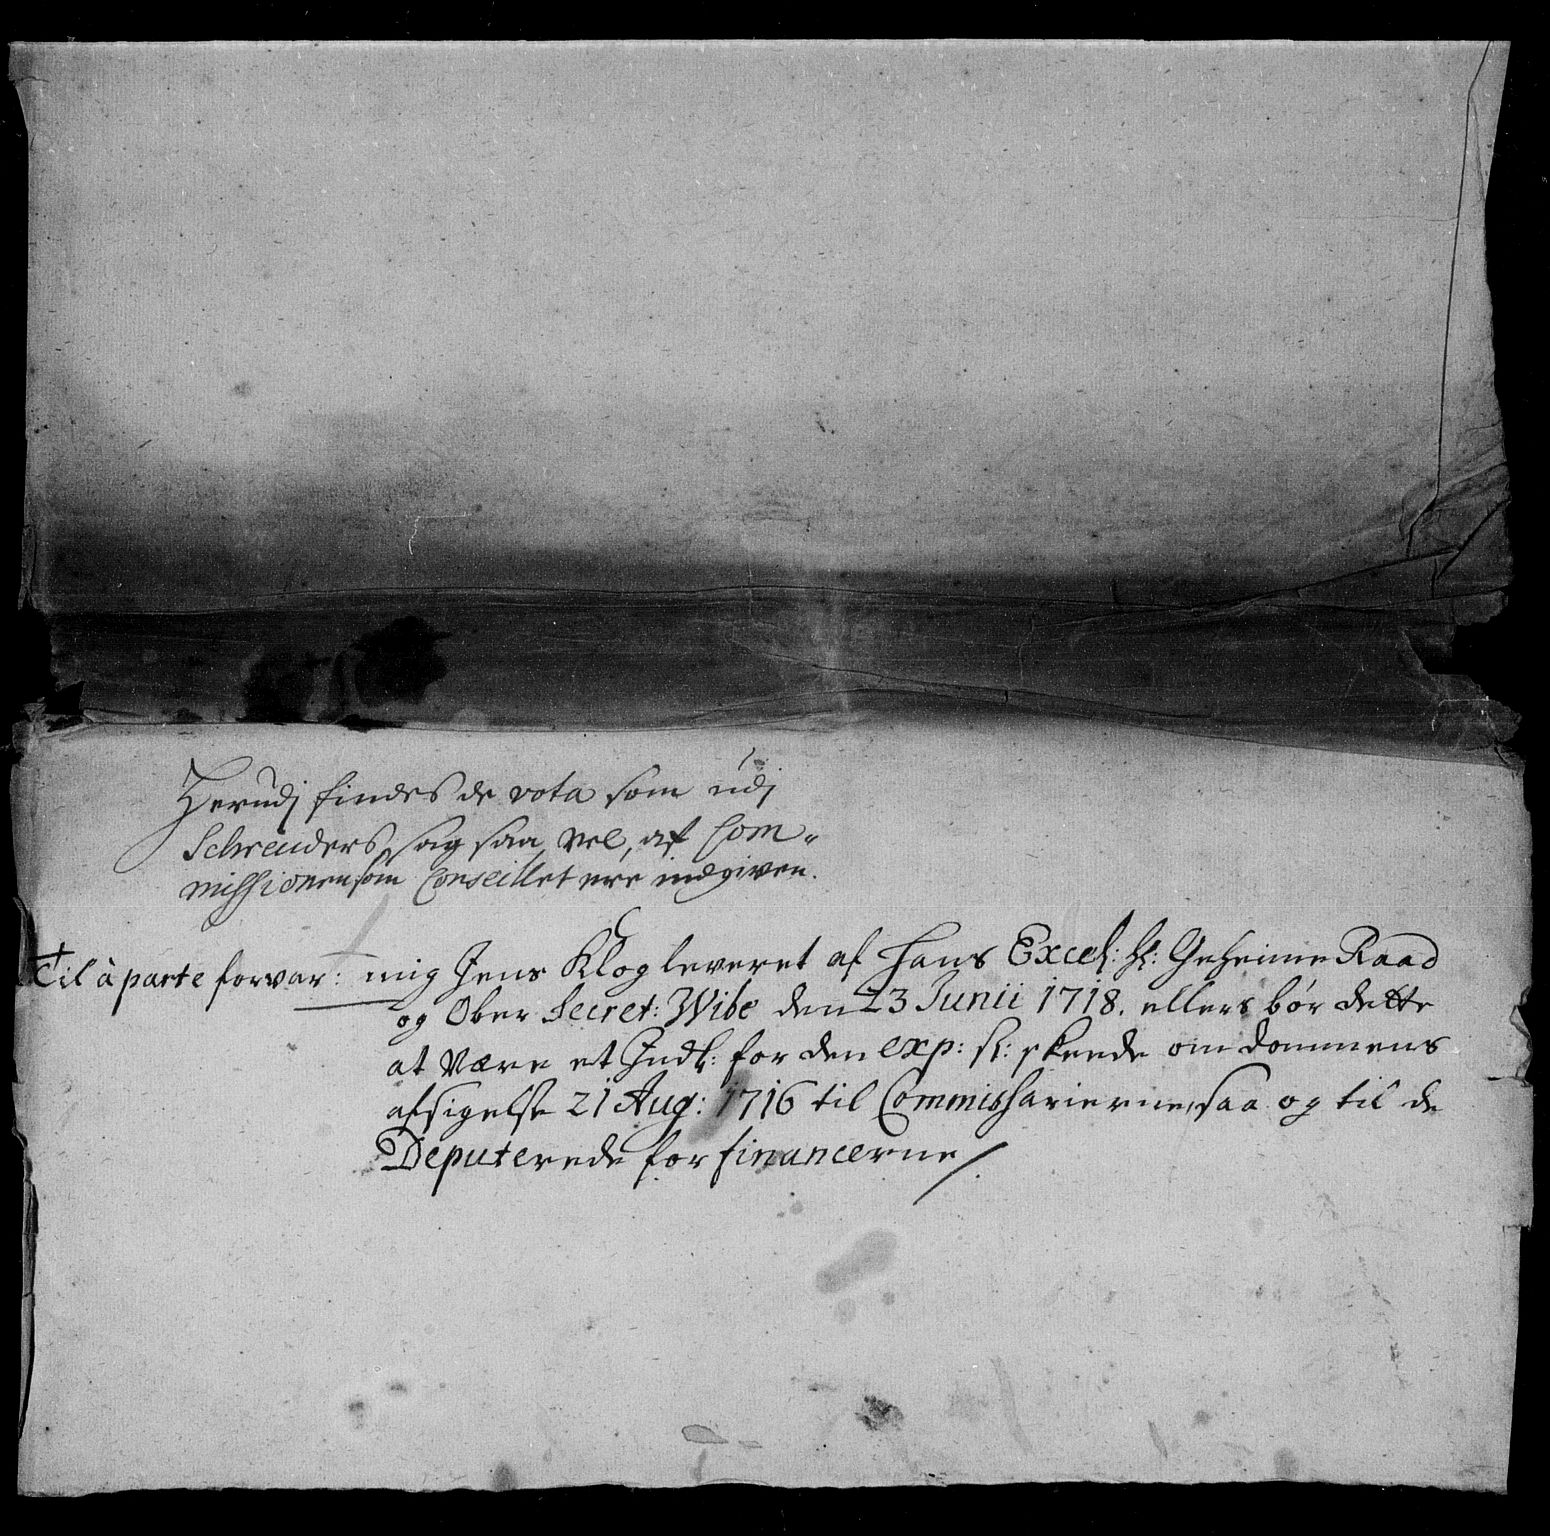 Herudj findes de vota som udj
Schreuders sag saa vel, af Com-
missionen som Conseillet ere indgiven.
Til à parte forvar: mig Jens Klog leveret af Hans Excel: Hr: Geheime Raad
og Ober Secret: Wibe den 23 Junii 1718. ellers bør dette
at være et Indl: for den exp: sr: skeede om dommens
afsigelse 21 Aug: 1716 til Commissarierne, saa og til de
Deputerede for financerne /.